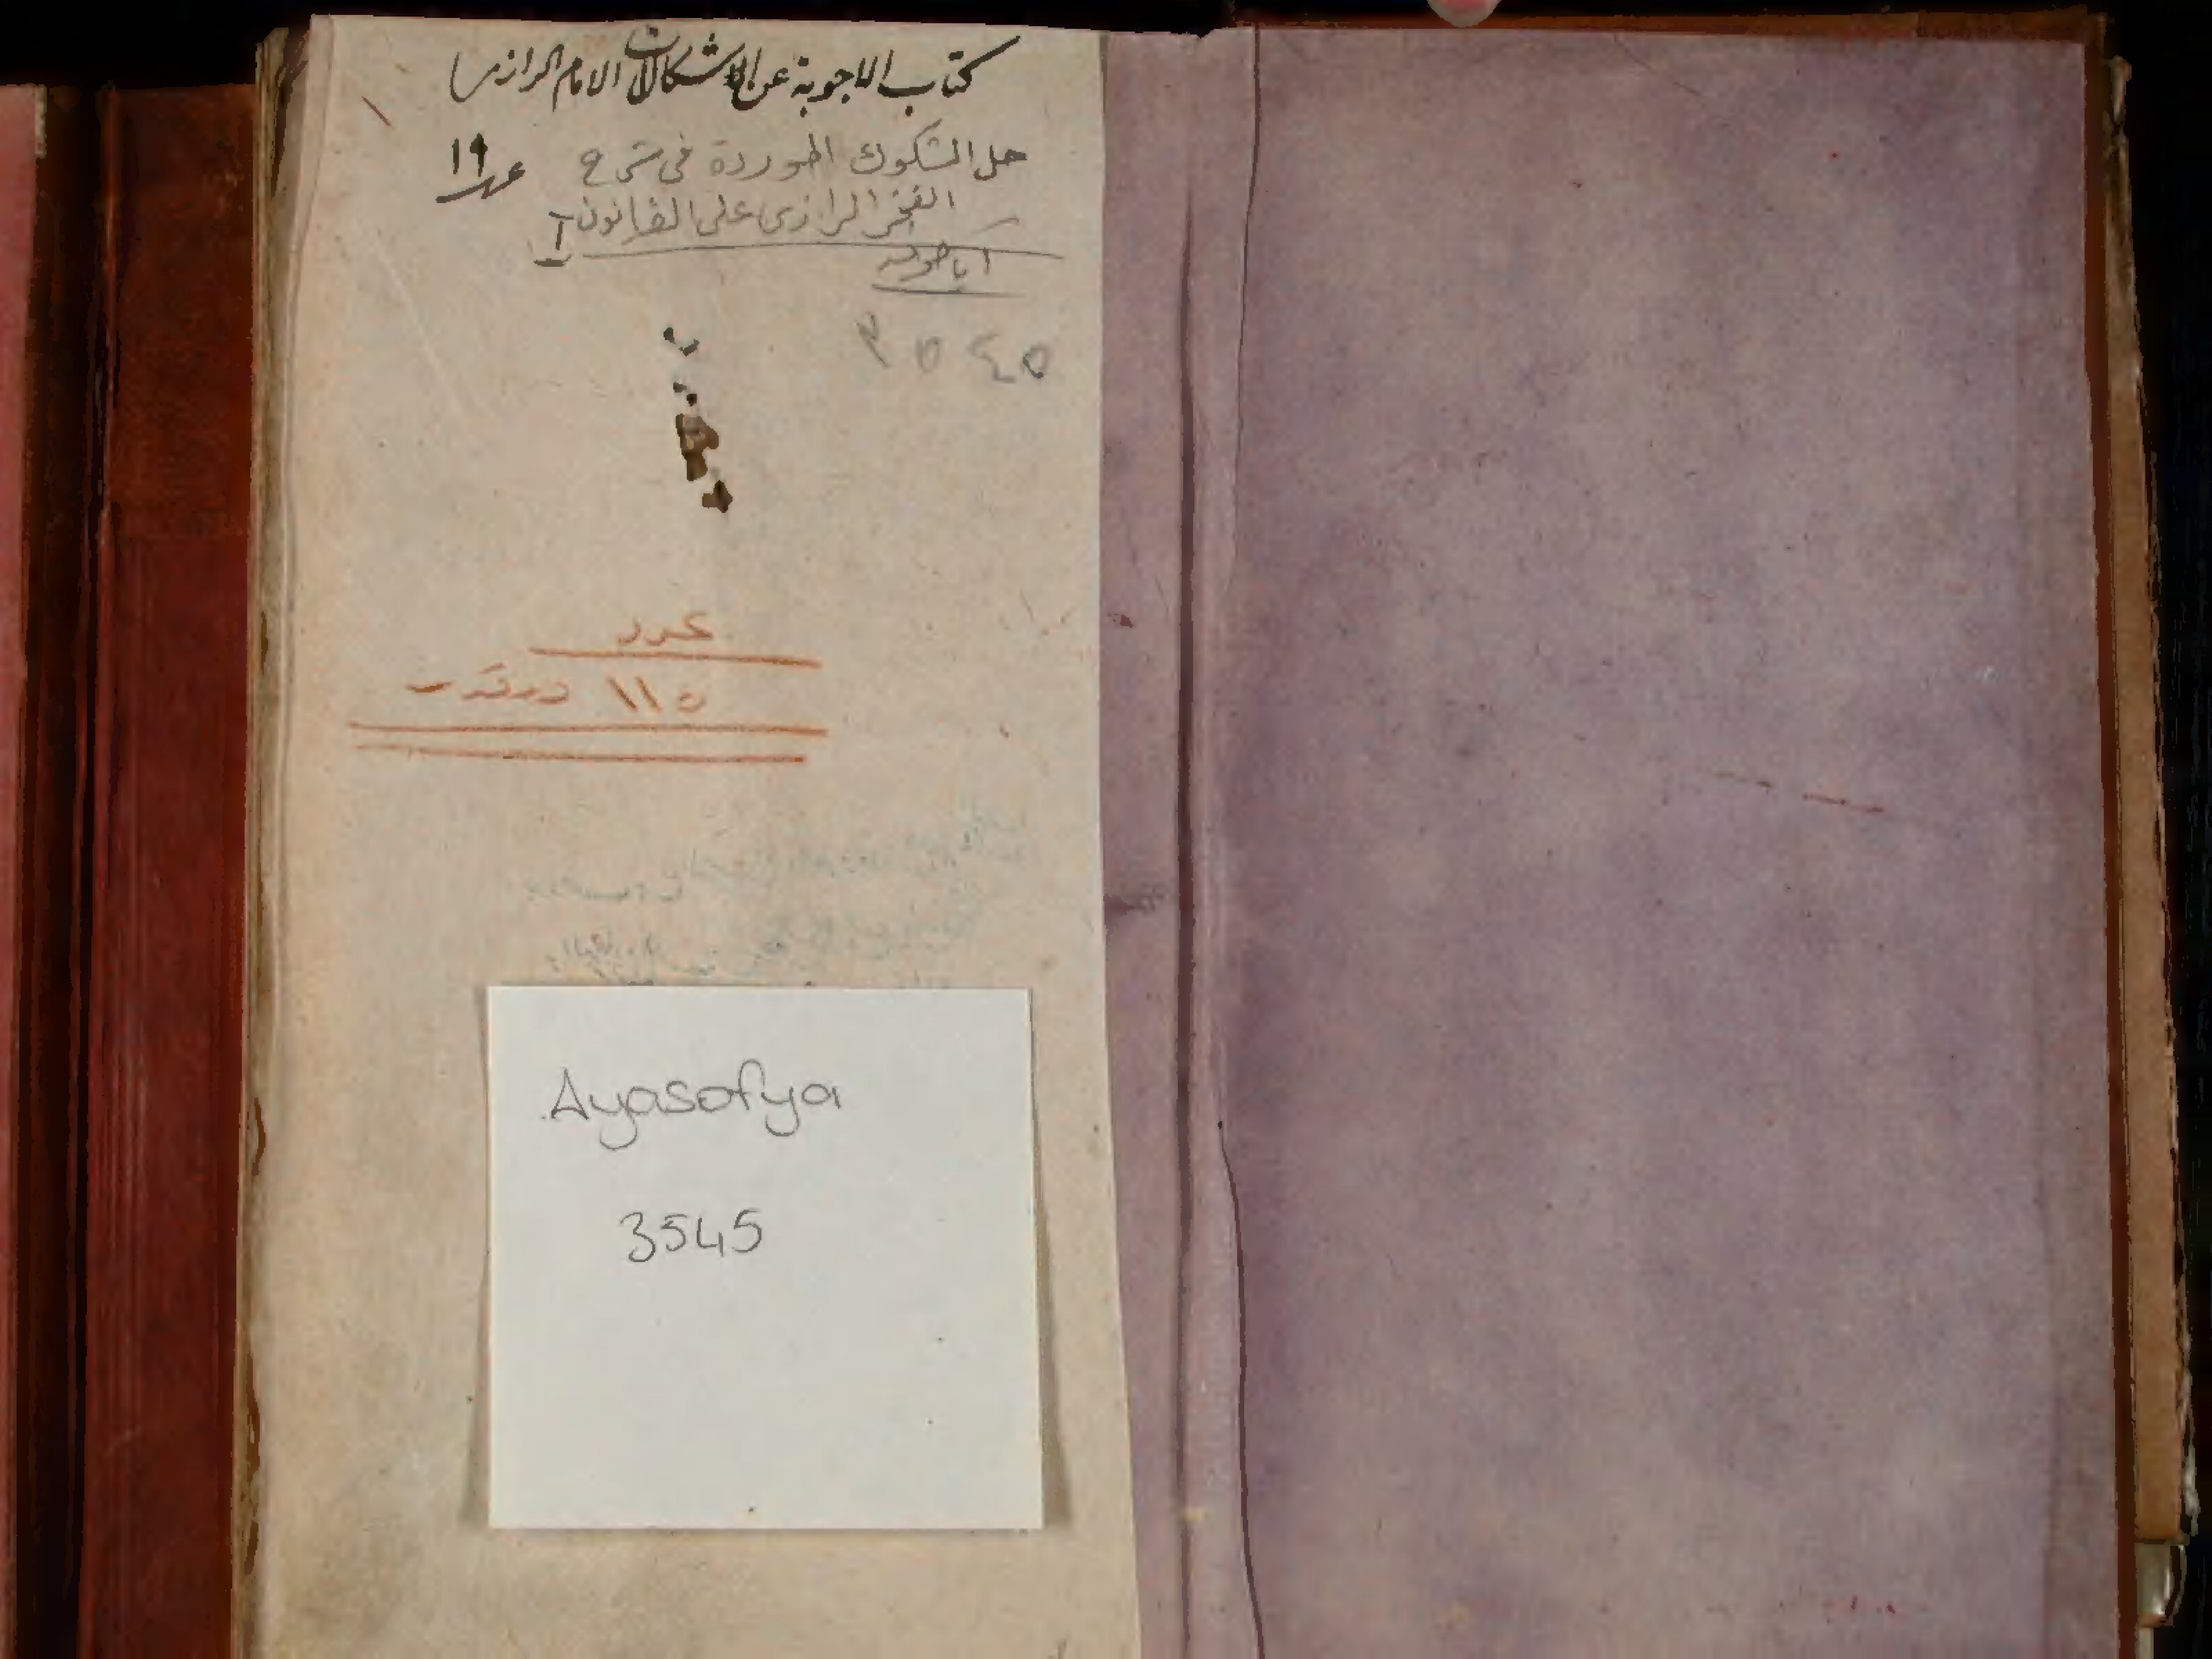 كتاب الاجوبة عن الاشكالات الامام الرازى
حل الشكوك الموردة فى شرح
١٩
الفخر الرازى على القانون I
اياصوفيه
٣٥٤٥
عدد
١١٥ ورقدر
Ayasofya
3545